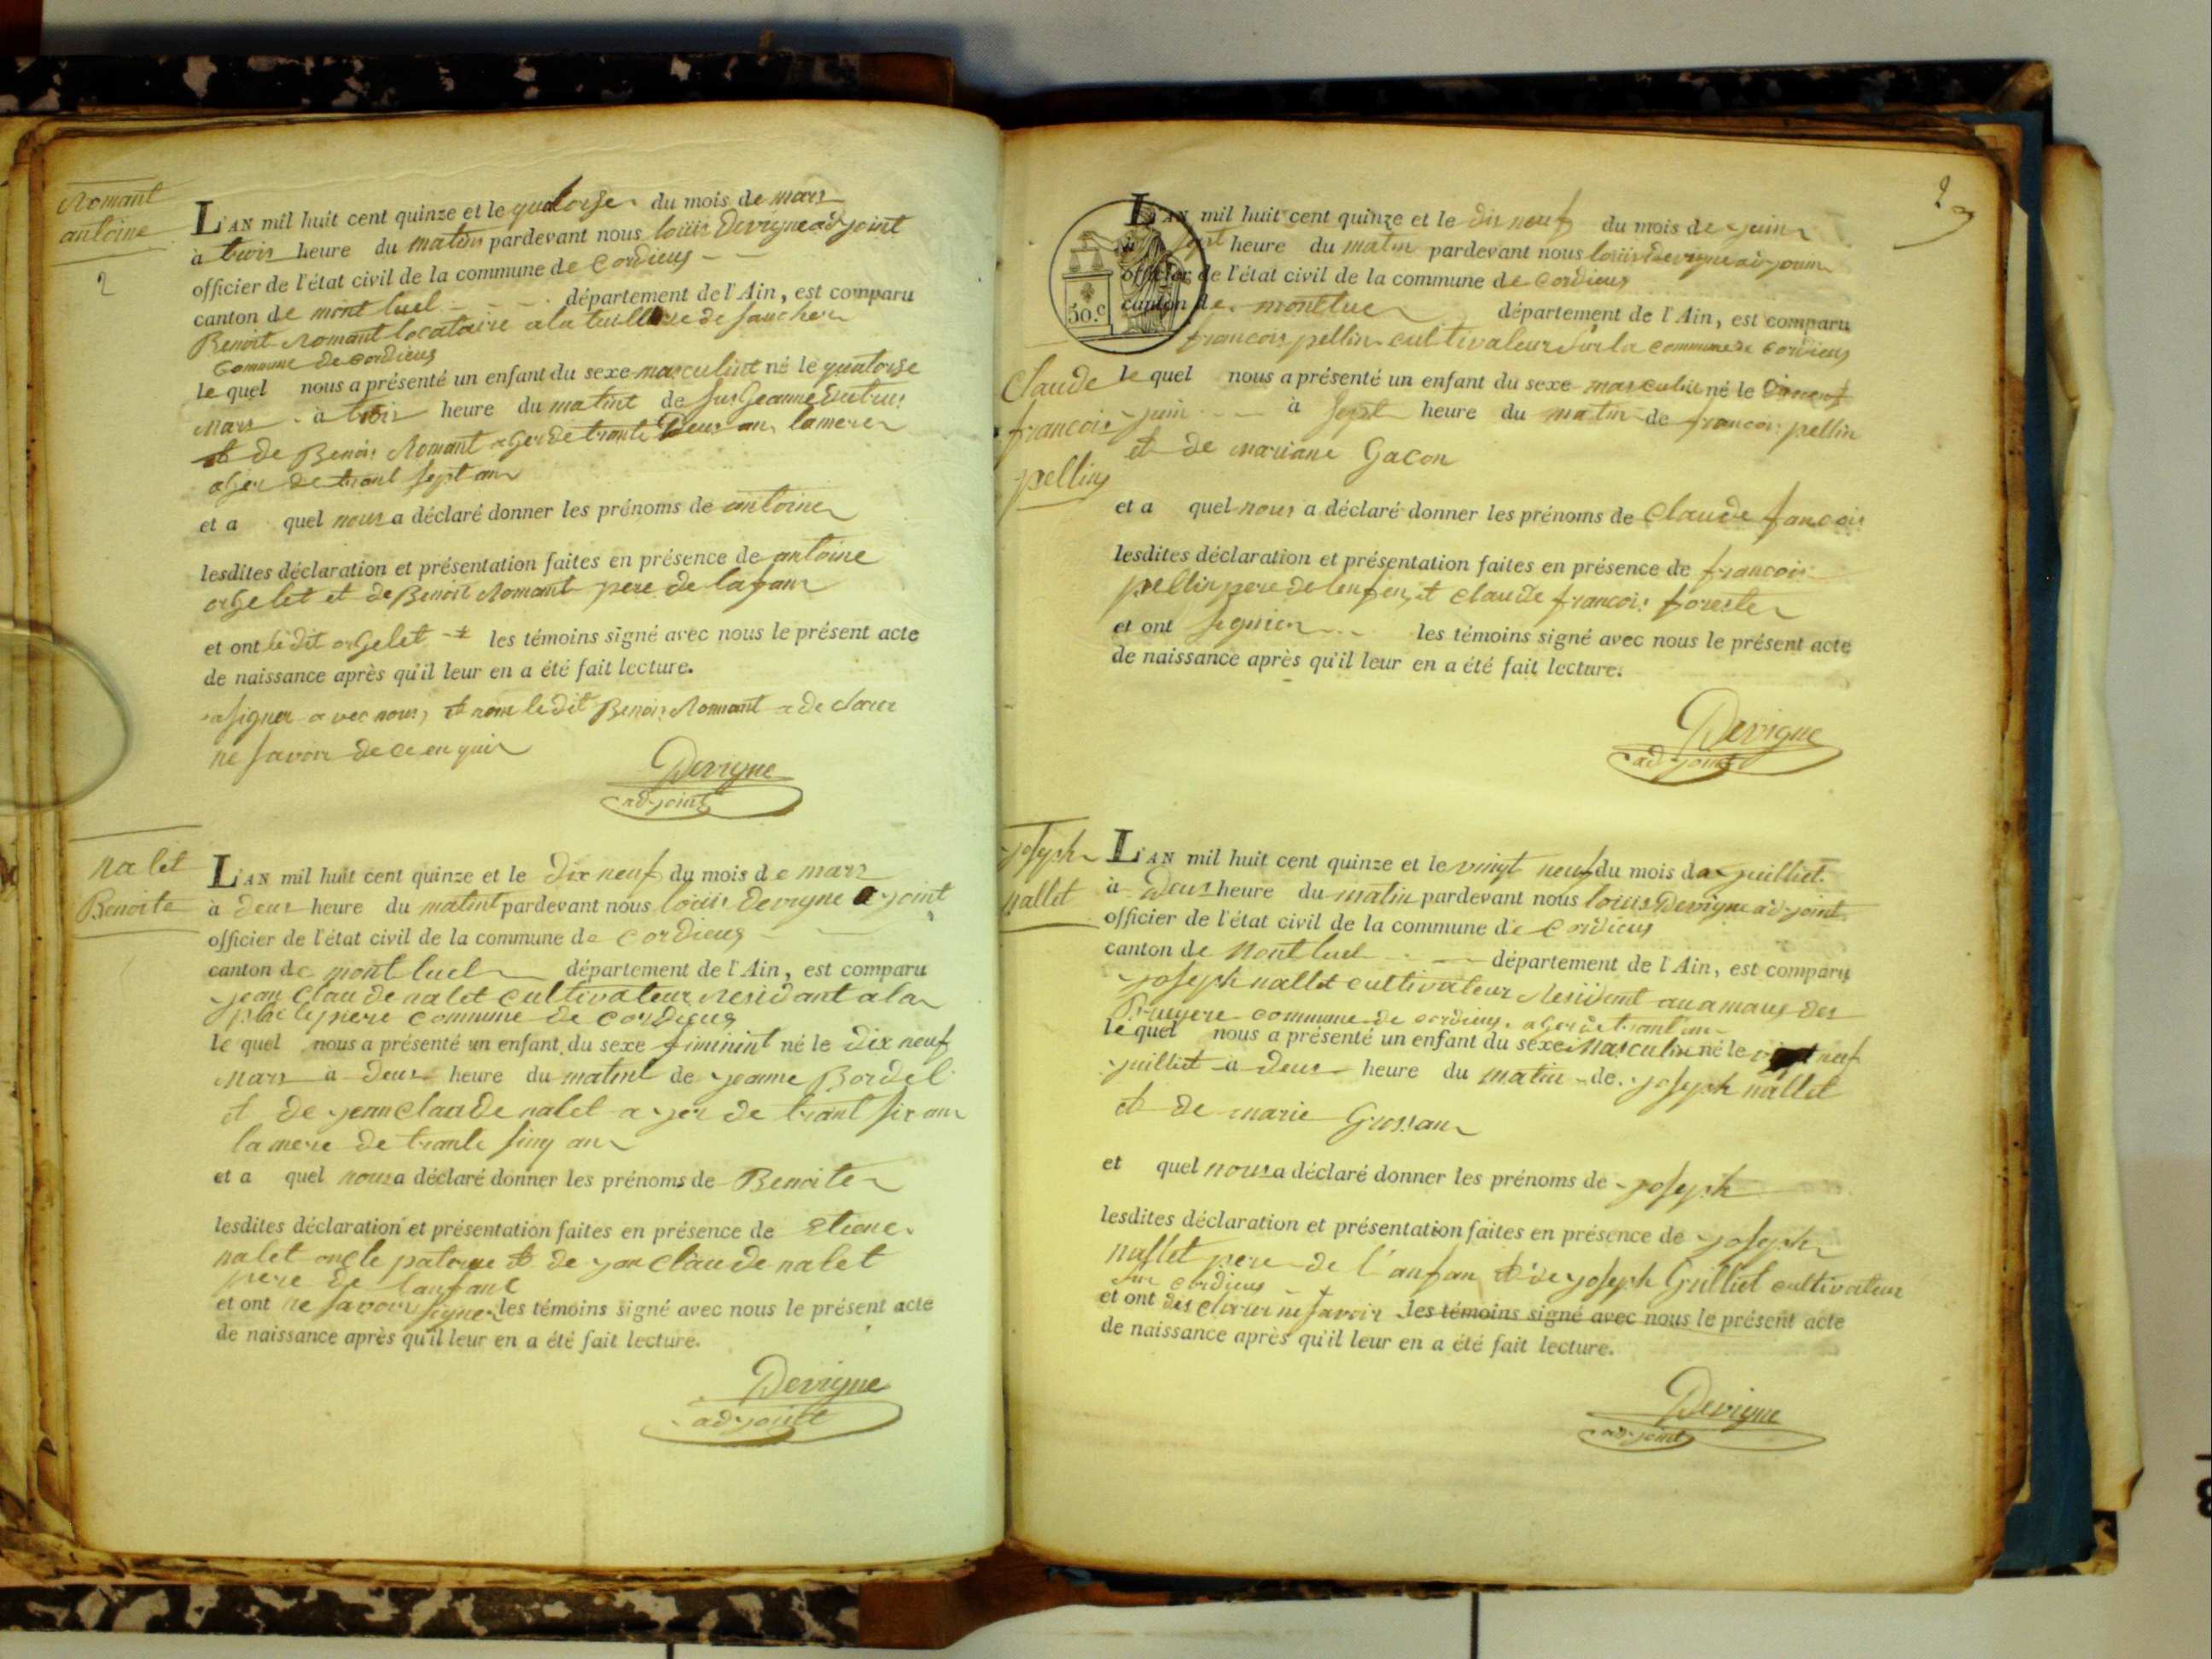 Romant
antoine
2
L'AN mil huit cent quinze et le quatorse du mois de mars
à trois heure du matin pardevant nous louis Devigne adjoint
officier de l'état civil de la commune de Cordieux
canton de mont luel département de l'Ain, est comparu
Benoit Romant locataire a la de
Commune de cordieux
le quel nous a présenté un enfant du sexe masculint né le quatorse
mars à trois heure du matint de Jeanne
et de Benoit Romant de trante Deux an la mere
de trant sept an
et a quel nous a déclaré donner les prénoms de antoine
lesdites déclaration et présentation faites en présence de antoine
orgelet et de Benoit Romant pere de
et ont le dit orgelet les témoins signé avec nous le présent acte
de naissance après qu'il leur en a été fait lecture.
a signer avec nous, et nom le dit Benoit Romant a de clarer
ne savoir de ce en quir
Devigne
adjoint
nalet
Benoite
L'AN mil huit cent quinze et le dix neuf du mois de mars
à deux heure du matint pardevant nous louis Devigne ajoint
officier de l'état civil de la commune de Cordieux
canton de mont luel département de l'Ain, est comparu
jean Claude nalet cultivateur Residant a la
commune de cordieux
le quel nous a présenté un enfant du sexe fiminint né le dix neuf
Mars à deux heure du matint de jeanne Bordel
et de jean claude nalet a jer de trant six an
la mere de trante sinq an
et a quel nous a déclaré donner les prénoms de Benoite
lesdites déclaration et présentation faites en présence de Etiene
nalet oncle et de jan Claude nalet
pere de lanfant
et ont ne savoir signer les témoins signé avec nous le présent acte
de naissance après qu'il leur en a été fait lecture.
Devigne
adjoint
2
50.c
L'AN mil huit cent quinze et le dis neuf du mois de juin
à sept heure du matin pardevant nous louis devigne adjoin
officier de l'état civil de la commune de Cordieux
canton de montluel département de l'Ain, est comparu
francois pellin cultivateur sur la commune de cordieux
Claude
francois
pellin
le quel nous a présenté un enfant du sexe masculin né le
juin à sept heure du matin de francois pellin
et de mariane Gacon
et a quel nous a déclaré donner les prénoms de Claude fancois
lesdites déclaration et présentation faites en présence de francois
pellin pere de lenfen et Claude francois forestier
et ont signer les témoins signé avec nous le présent acte
de naissance après qu'il leur en a été fait lecture.
Devigne
adjoint
joseph
nallet
L'AN mil huit cent quinze et le vingt neuf du mois de juilliet
à Deux heure du matin pardevant nous louis Devigne adjoint
officier de l'état civil de la commune de Cordieux
canton de Montluel département de l'Ain, est comparu
joseph nallet cultivateur Resident au amaux des
Bruyere commune de cordieux
le quel nous a présenté un enfant du sexe Masculin né le vingt neuf
juilliet à deux heure du matin de joseph nallet
et de marie Grossan
et quel nous a déclaré donner les prénoms de joseph
lesdites déclaration et présentation faites en présence de joseph
nallet pere de l'anfan et de joseph Guilliet cultivateur
sur cordieux
et ont des clarer ne savoir les témoins signé avec nous le présent acte
de naissance après qu'il leur en a été fait lecture.
Devigne
adjoint